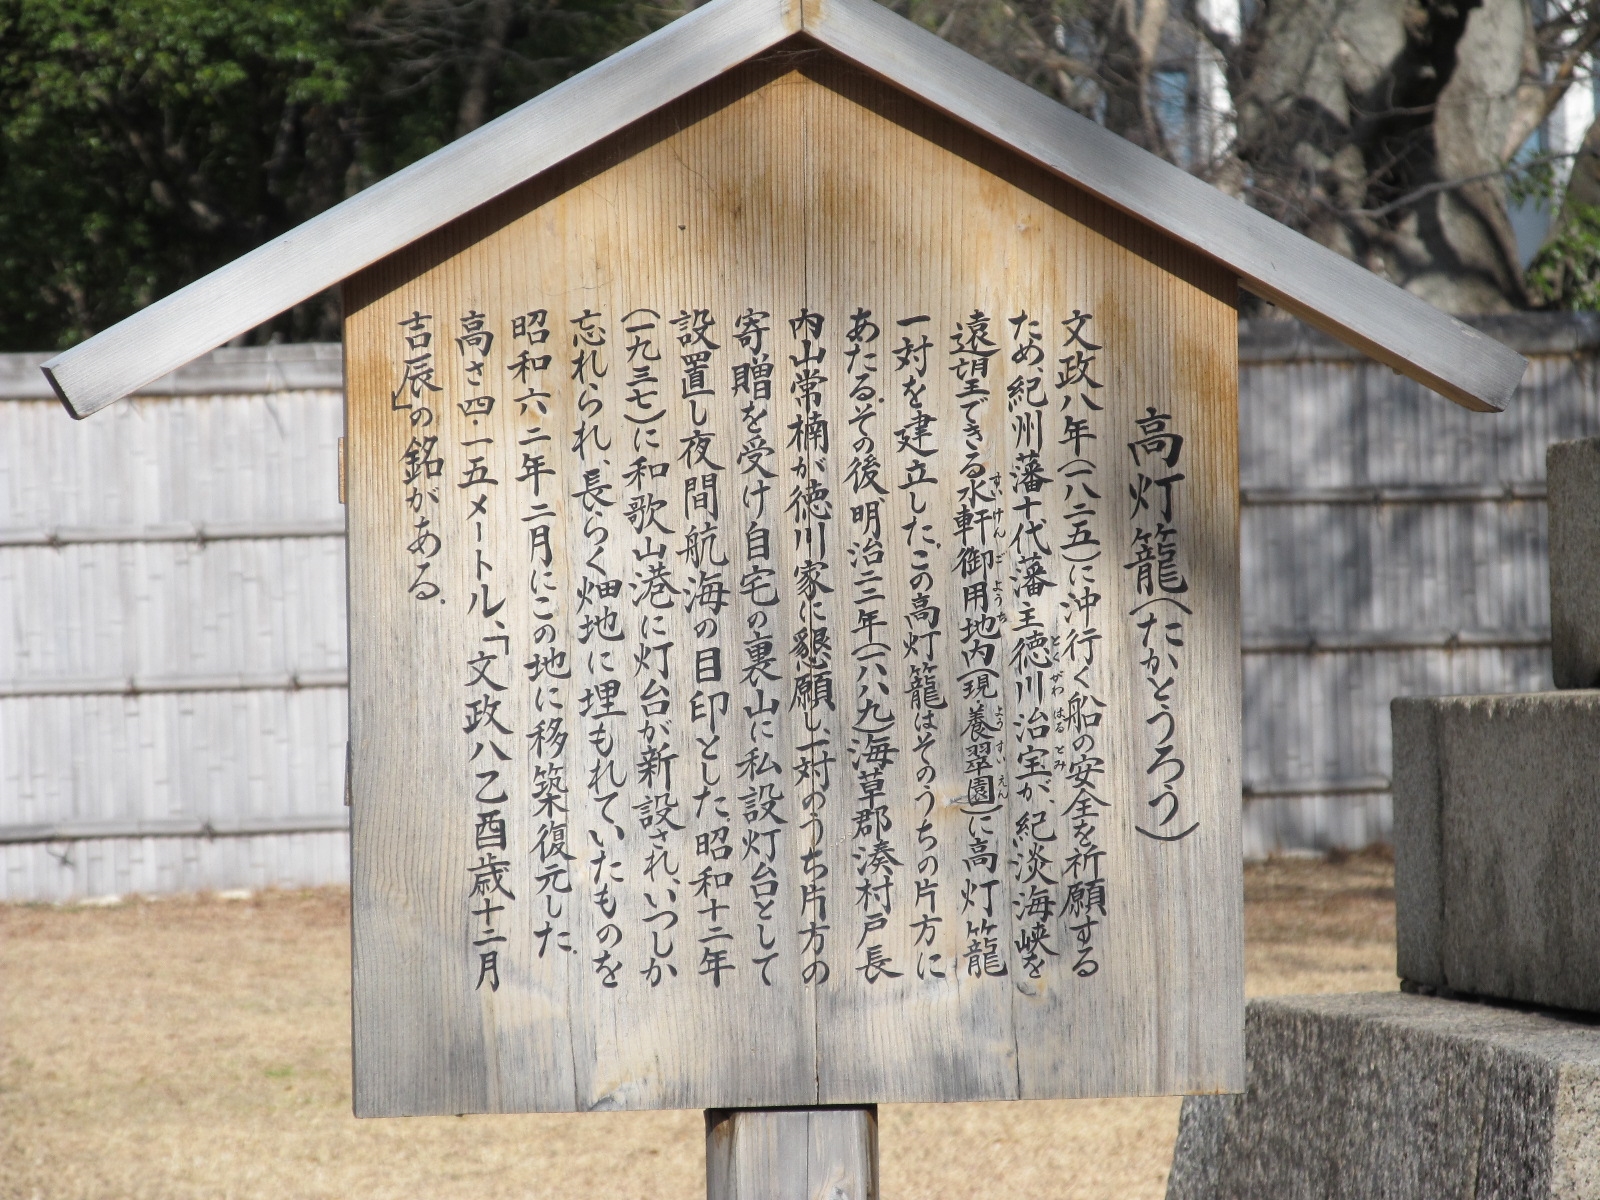 高灯籠(たかとうろう)
文政八年(一八二五)に沖行く船の安全を祈願する
ため、紀州藩十代藩主徳川治宝が、紀淡海峡を
とくがわ はるとみ
遠望できる水軒御用地内(現・養翠園)に高灯籠
すいけん ごようち ようすいえん
一対を建立した。この高灯籠はそのうちの片方に
あたる。その後、明治二二年(一八八九)海草郡湊村戸長
内山常楠が徳川家に懇願し、一対のうち片方の
寄贈を受け自宅の裏山に私設灯台として
設置し夜間航海の目印とした。昭和十二年
(一九三七)に和歌山港に灯台が新設され、いつしか
忘れられ、長らく畑地に埋もれていたものを
昭和六二年二月にこの地に移築復元した。
高さ四・一五メートル、「文政八乙酉歳十二月
吉辰」の銘がある。